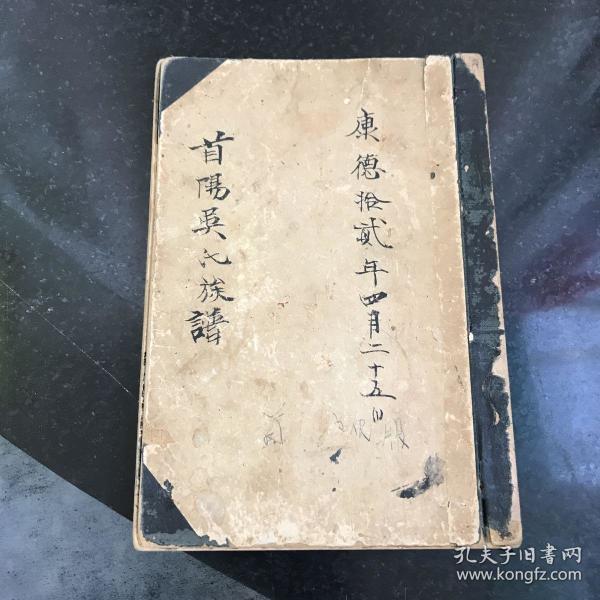 康德拾貳年四月二十五日
首陽吳氏族譜
孔夫子旧書网
www.kongfz.com